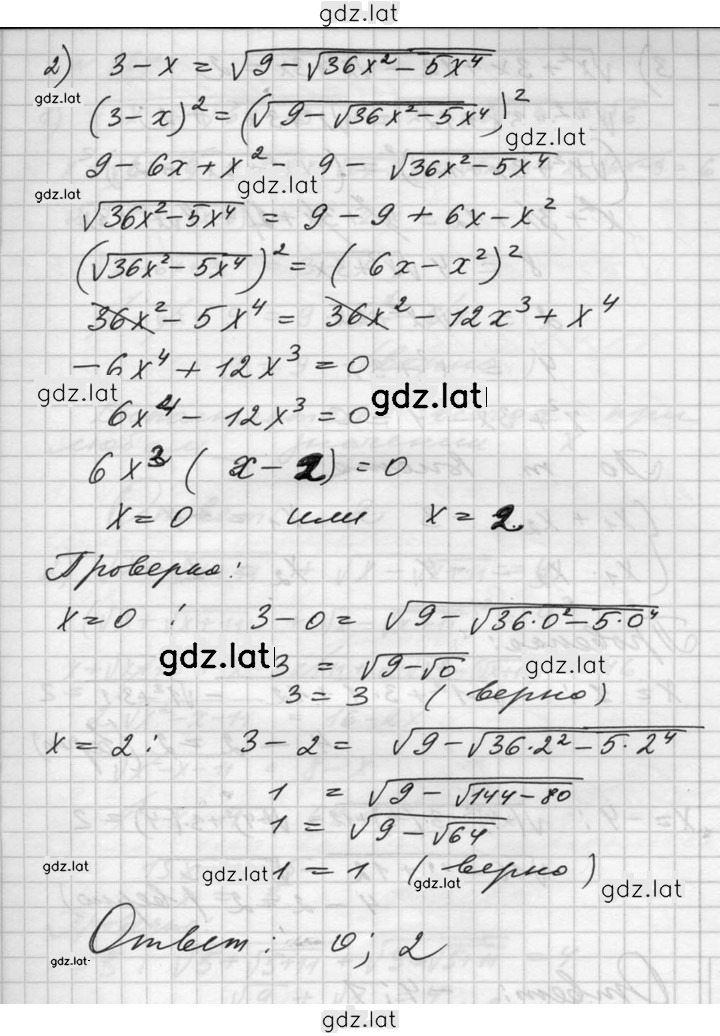 gdz.lat
2) 3 - x = √(9 - √(36x² - 5x⁴))
gdz.lat
(3 - x)² = (√(9 - √(36x² - 5x⁴)))²
gdz.lat
9 - 6x + x² - 9 - √(36x² - 5x⁴)
gdz.lat
gdz.lat
√(36x² - 5x⁴) = 9 - 9 + 6x - x²
(√(36x² - 5x⁴))² = (6x - x²)²
36x² - 5x⁴ = 36x² - 12x³ + x⁴
-6x⁴ + 12x³ = 0
gdz.lat
gdz.lat
6x⁴ - 12x³ = 0
6x³ (x - 2) = 0
x = 0 или x = 2
Проверка:
x = 0 : 3 - 0 = √(9 - √(36·0² - 5·0⁴))
gdz.lat
3 = √(9 - √0)
gdz.lat
3 = 3 (верно)
x = 2 : 3 - 2 = √(9 - √(36·2² - 5·2⁴))
1 = √(9 - √(144 - 80))
1 = √(9 - √64)
gdz.lat
gdz.lat
1 = 1 (верно)
gdz.lat
gdz.lat
Ответ: 0; 2
gdz.lat
gdz.lat